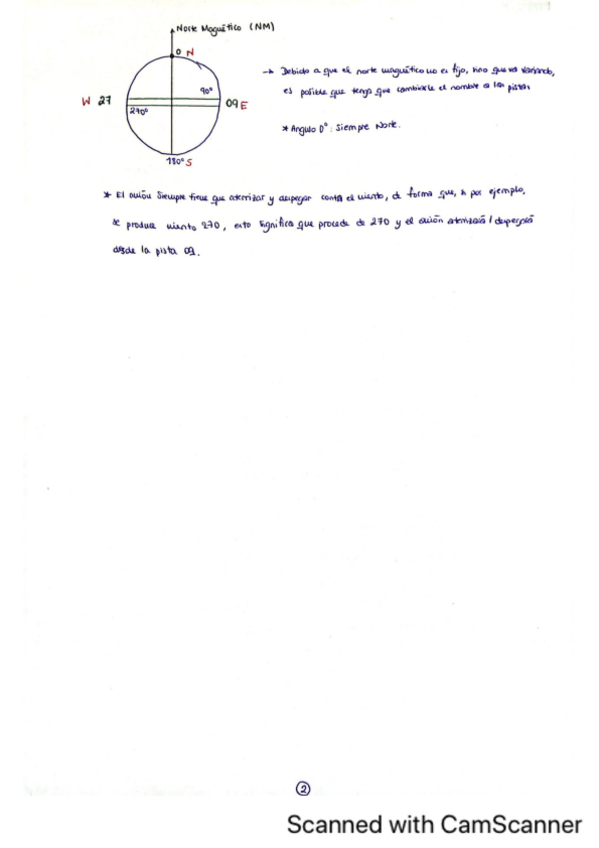 Norte Magnético (NM)
0 N
→ Debido a que el norte magnético no es fijo, sino que va variando,
es posible que tenga que cambiarle el nombre a las pistas
90°
W 27
09 E
270°
* Angulo 0°: Siempre Norte.
180° S
* El avión siempre tiene que aterrizar y despegar contra el viento, de forma que, si por ejemplo,
se produce viento 270, esto significa que procede de 270 y el avión aterrizará / despegará
desde la pista 09.
2
Scanned with CamScanner